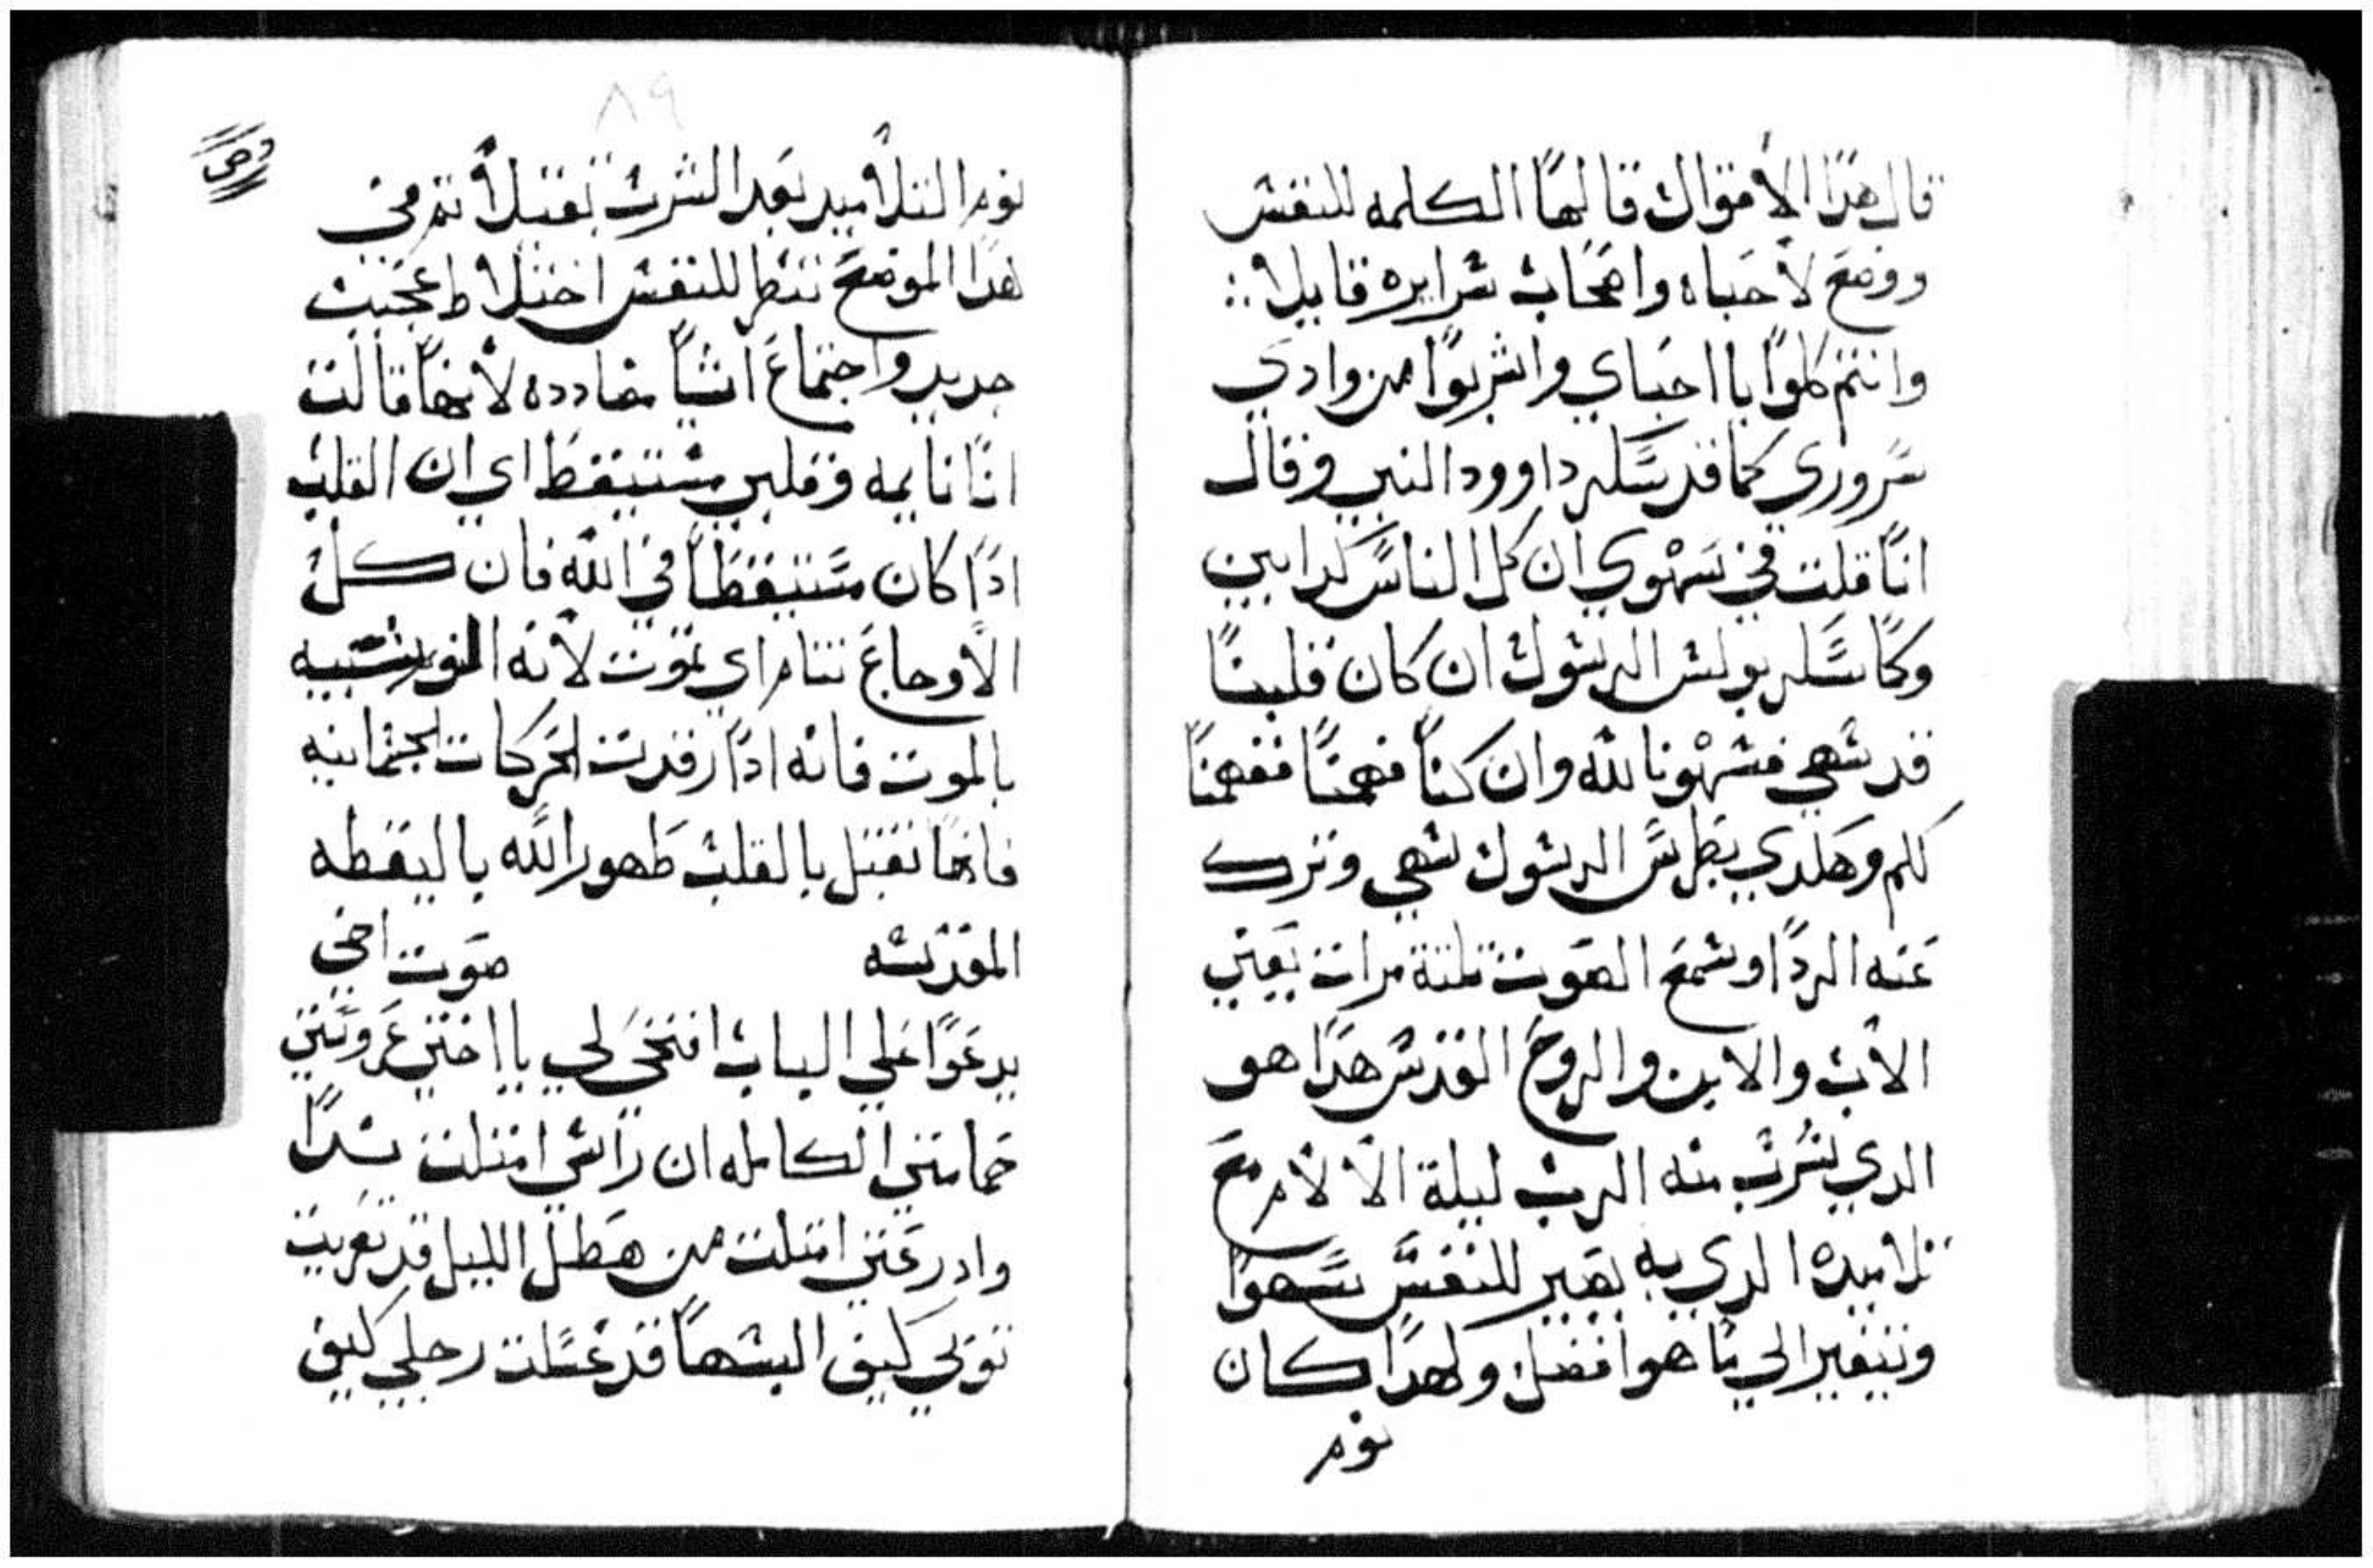 قال هدا الاقوال قالها الكلمه للنفس
ووضع لاحباه واصحاب سرايره قايلا ::
وانتم كلوا يا احباي واشربوا من وادي
سروري كما قد سكر داوود النبي وقال
انا قلت في سهوي ان كل الناس كدابين
وكما سكر بولس الرسول ان كان قلبنا
قد سهي فسهونا لله وان كنا فهمنا ففهمنا
لكم وهكدي بطرس الرسول سهي وترك
عنه الردا وسمع الصوت تلتة مرات يعني
الاب والابن والروح القدس هدا هو
الدي شرب منه الرب ليلة الالام مع
تلاميده الدي به يصير للنفس سهوا
وتتغير الي ما هو افضل ولهدا كان
نوم
٨٩
نوم التلاميد بعد الشرب بعتلا تم في
هدا الموضع تنظر للنفس اختلاط عجيب
جديد واجتماع اشيا مضادده لانها قالت
انا نايمه وقلبي مستيقظ اي ان القلب
ادا كان مستيقظا في الله فان كل
الاوجاع تنام اي تموت لانه النوم شبيه
بالموت فانه ادا رقدت الحركات الجثمانيه
فانها تقبل بالقلب ظهور الله باليقظه
المقدسه صوت اخي
يدعوا علي الباب افتحي لي يا اختي عروستي
حمامتي الكامله ان راسي امتلت ندا
وادرعتي امتلت من هطل الليل قد تعريت
توبي كيف البسها قد غسلت رجلي كيف